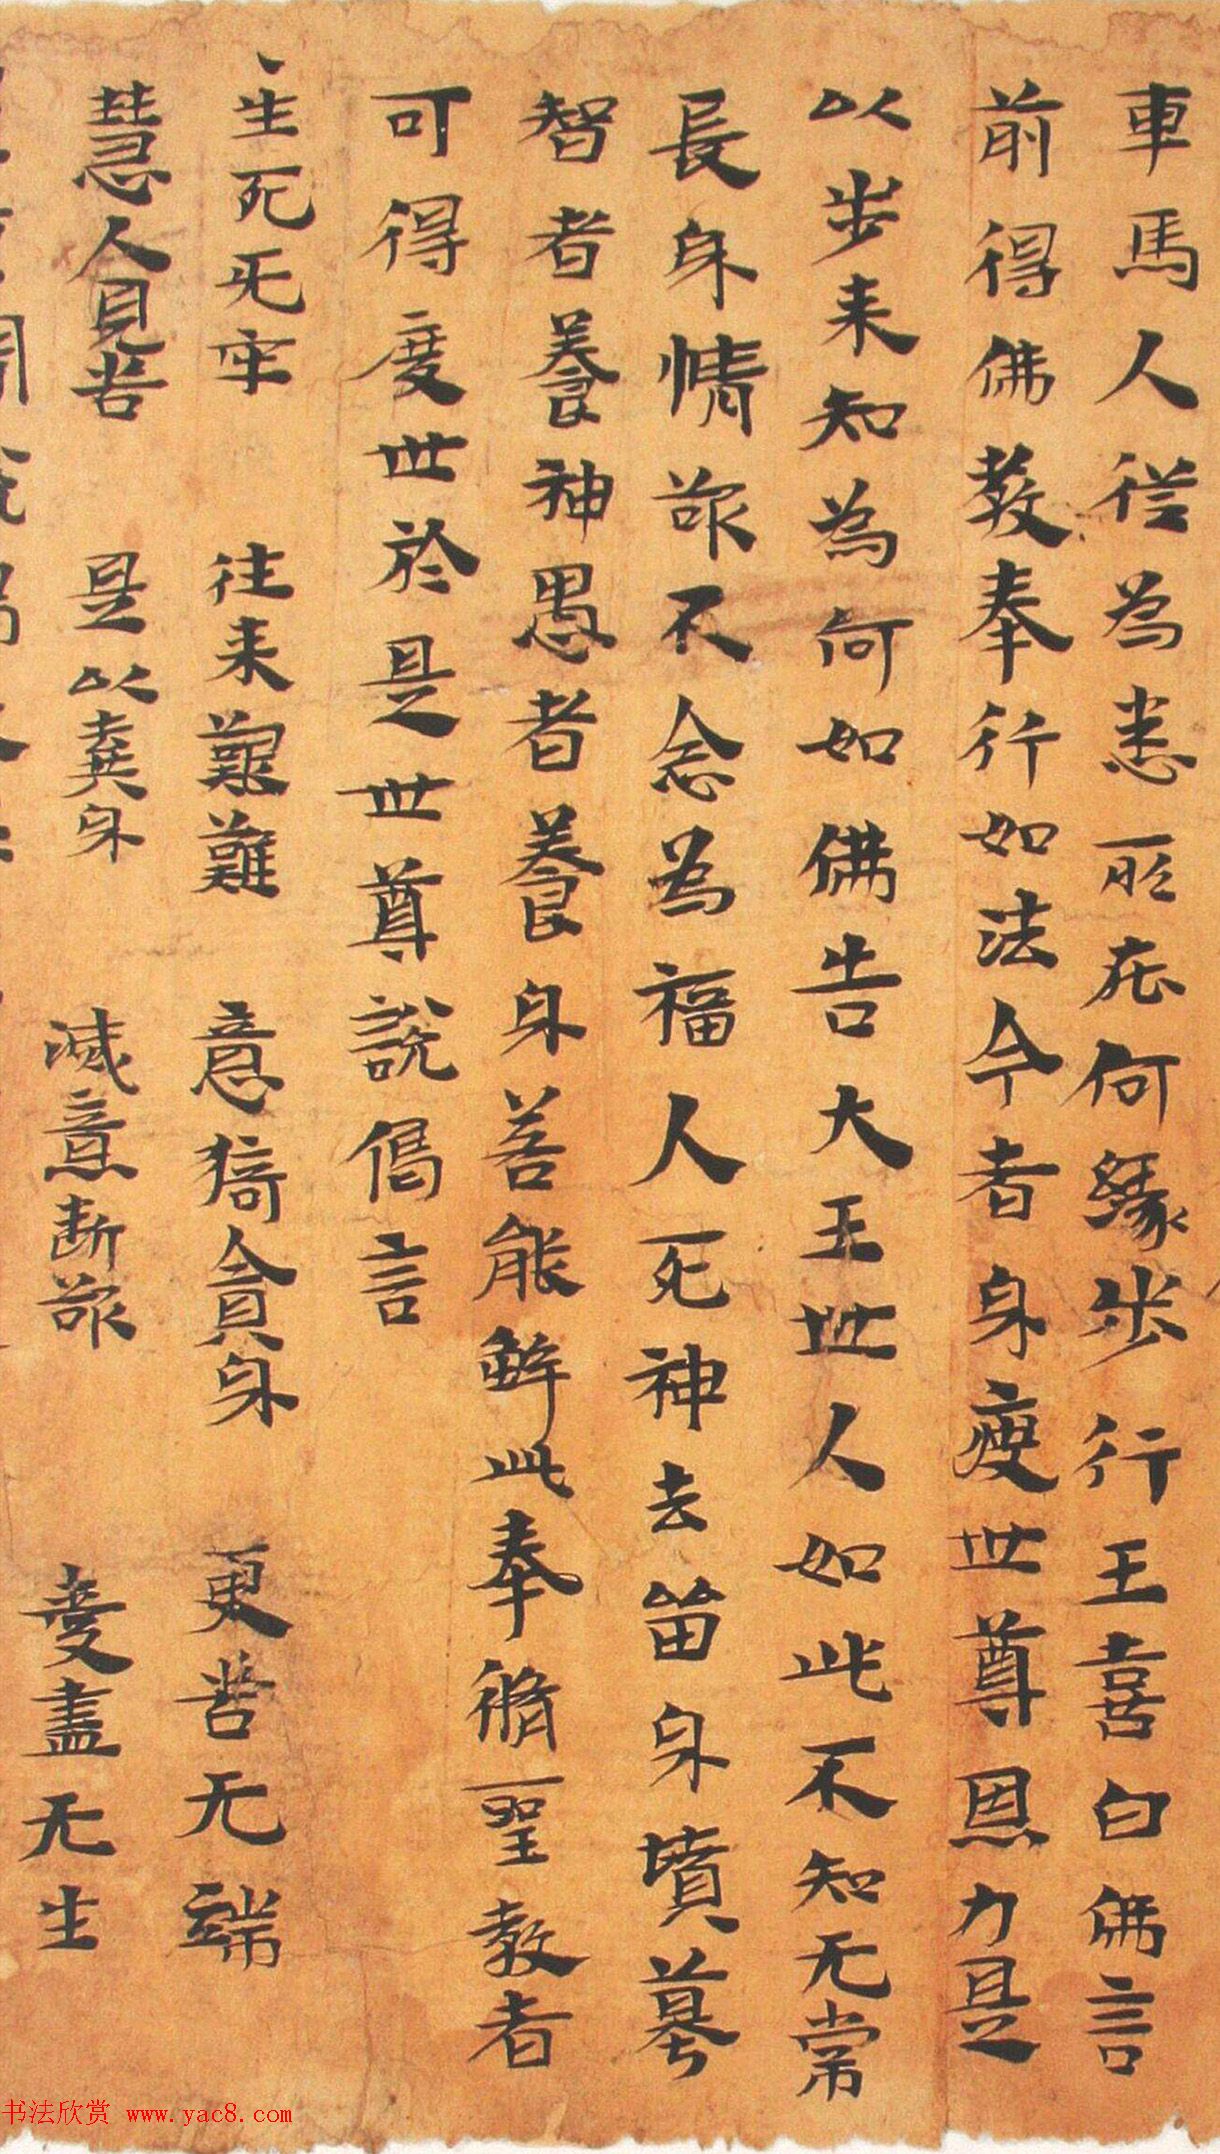 車馬人從為悉所在何緣步行王喜白佛言
前得佛教奉行如法今者身瘦世尊恩力是
以步来知為何如佛告大王世人如此不知无常
長身情欲不念為福人死神去留身墳墓
智者養神愚者養身若能解此奉脩聖教者
可得度世於是世尊說偈言
生死无牢 往来艱難 意猗貪身 更苦无端
慧人見苦 是以棄身 滅意断欲 愛盡无生
书法欣赏 www.yac8.com